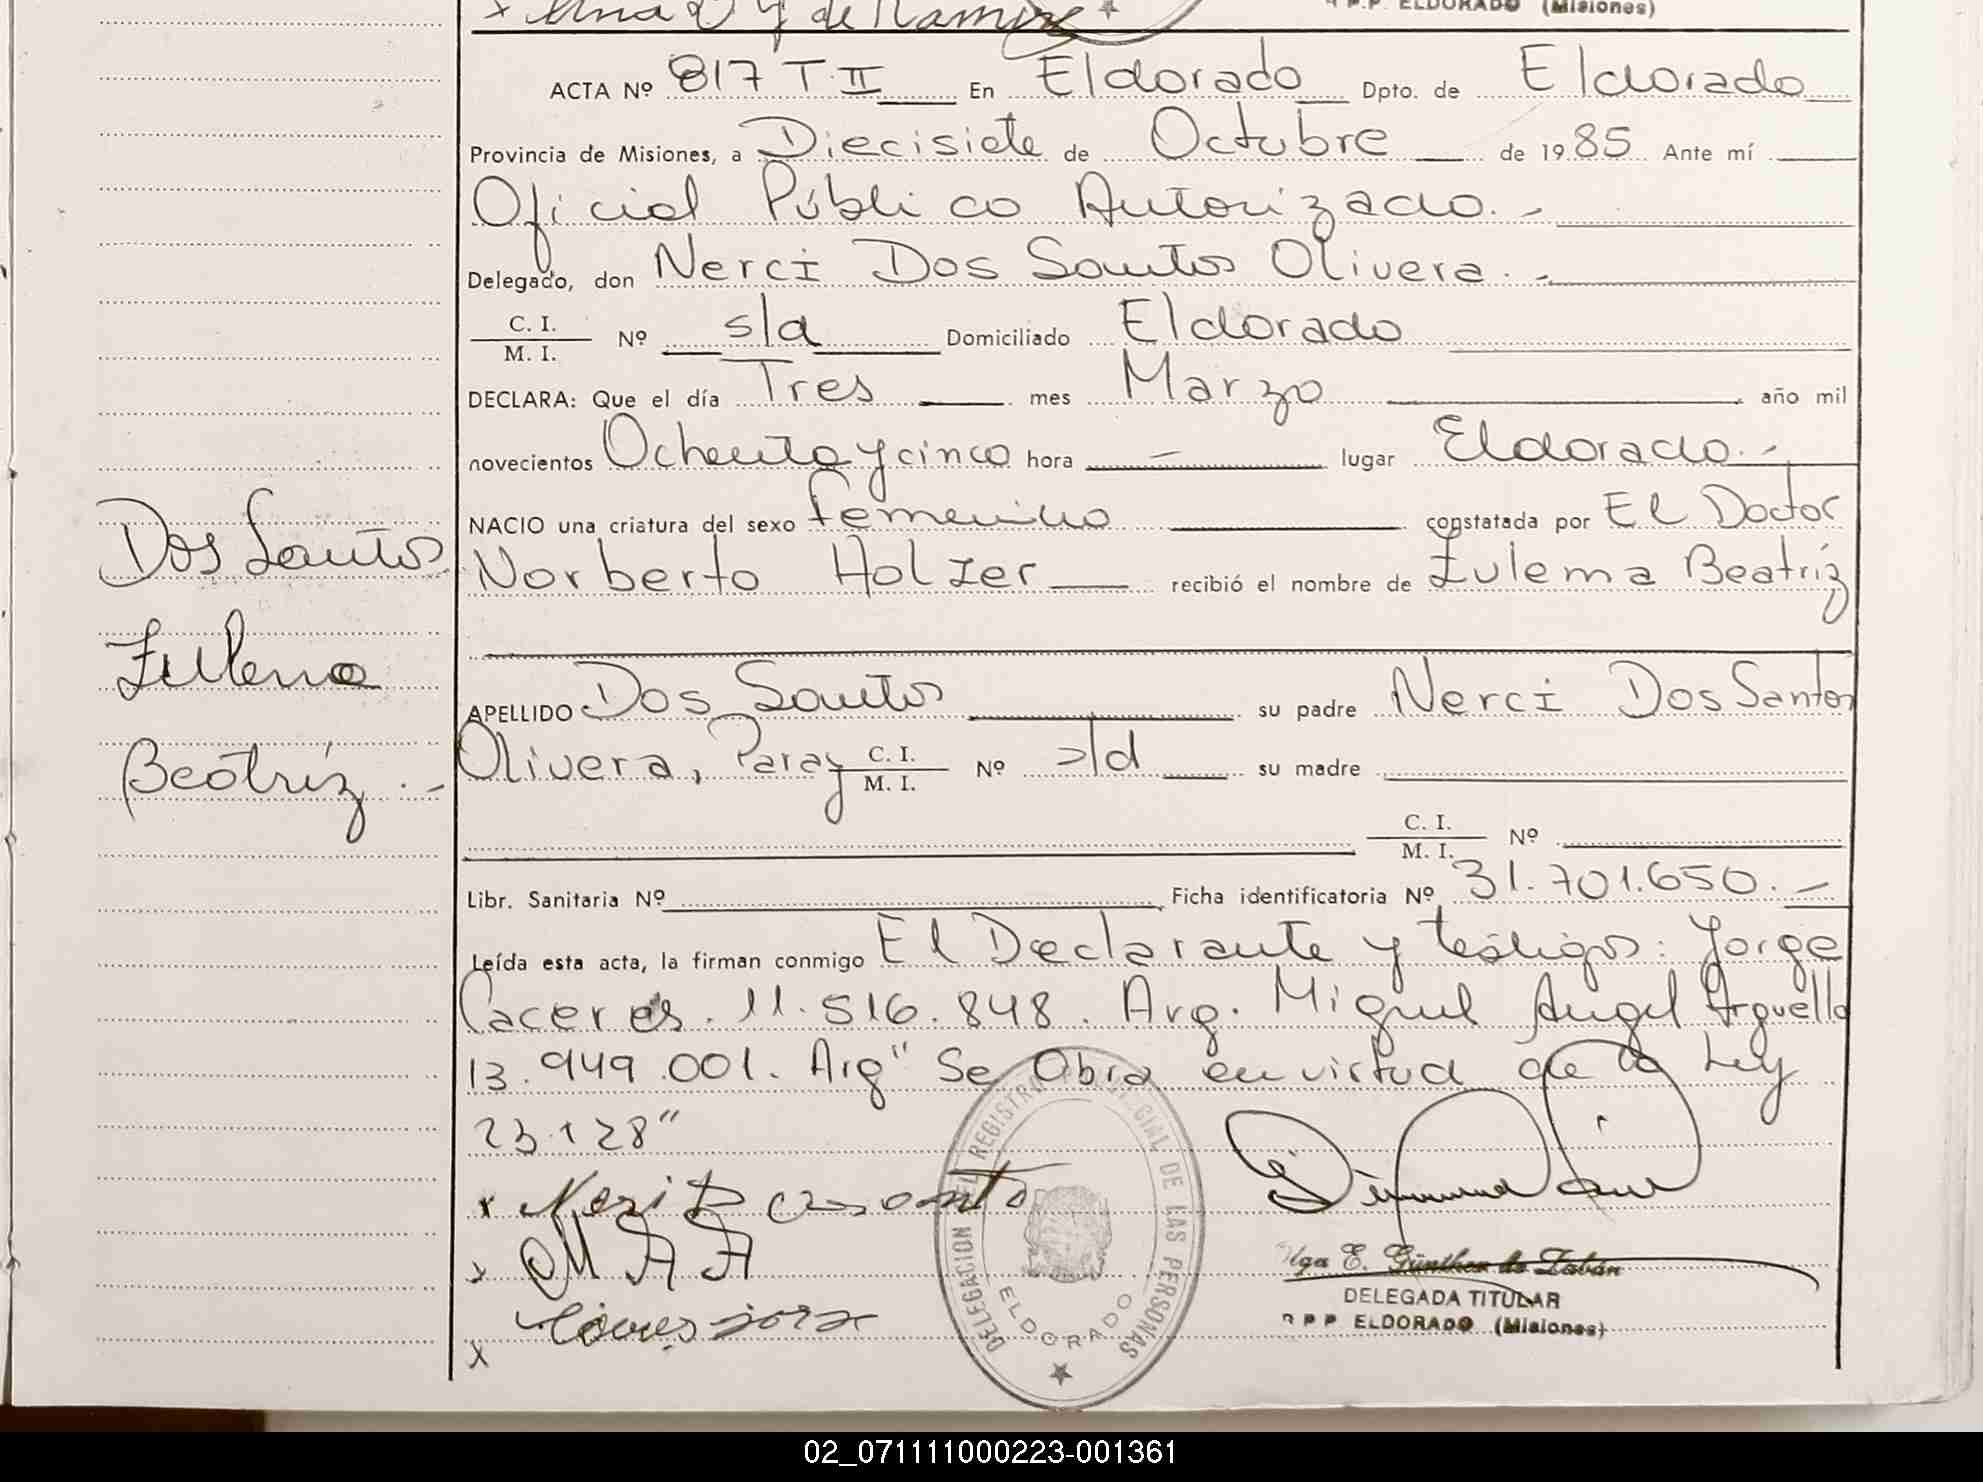 x de Ramirez
R P.P. ELDORADO (Misiones)
ACTA Nº 817 T. II En Eldorado Dpto. de Eldorado
Provincia de Misiones, a Diecisiete de Octubre de 1985 Ante mí
Oficial Público Autorizado.-
Delegado, don Nerci Dos Santos Olivera.-
C. I.
M. I. Nº s/d Domiciliado Eldorado
DECLARA: Que el día Tres mes Marzo año mil
novecientos Ochenta y cinco hora - lugar Eldorado.-
NACIO una criatura del sexo femenino constatada por El Doctor
Norberto Holzer recibió el nombre de Zulema Beatríz
Dos Santos
Zulema
Beatríz.-
APELLIDO Dos Santos su padre Nerci Dos Santos
Olivera, Paray C. I.
M. I. Nº s/d su madre
C. I.
M. I. Nº
Libr. Sanitaria Nº Ficha identificatoria Nº 31.701.650.-
Leída esta acta, la firman conmigo El Declarante y testigos: Jorge
Caceres. 11.516.848. Arg. Miguel Angel Arguello
13.949.001. Arg" Se Obra en virtud de la Ley
23.128"
x
x M A A
x
DELEGACION DEL REGISTRO PROVINCIAL DE LAS PERSONAS
ELDORADO
Olga E. Günther de Zabán
DELEGADA TITULAR
R P P ELDORADO (Misiones)
02_071111000223-001361